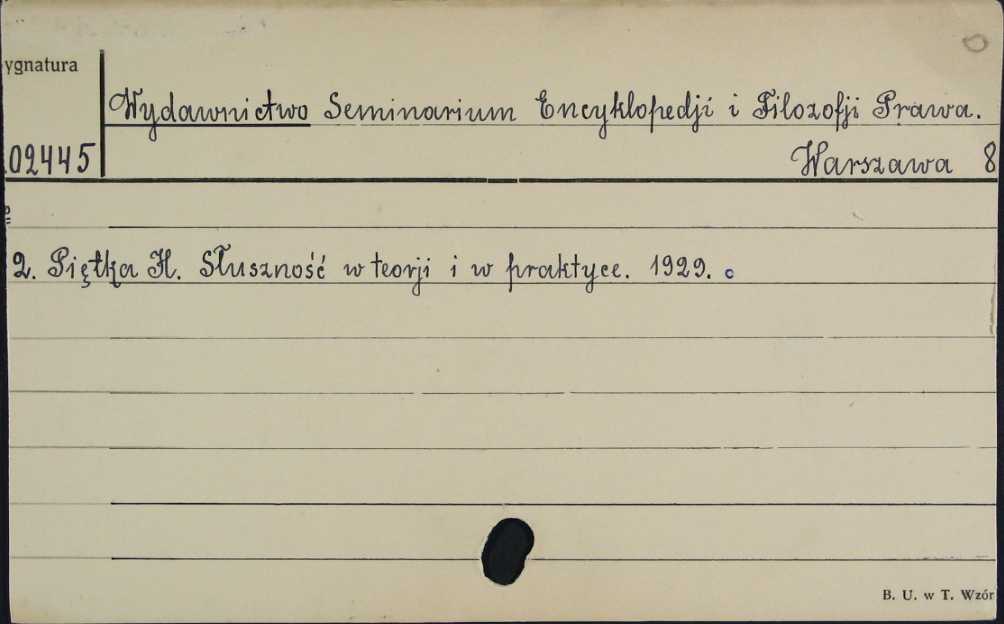 ygnatura
Wydawnictwo Seminarium Encyklopedji i Filozofji Prawa.
02445
Warszawa 8
2. Piętka H. Słuszność w teorji i w praktyce. 1929. c
B. U. w T. Wzór